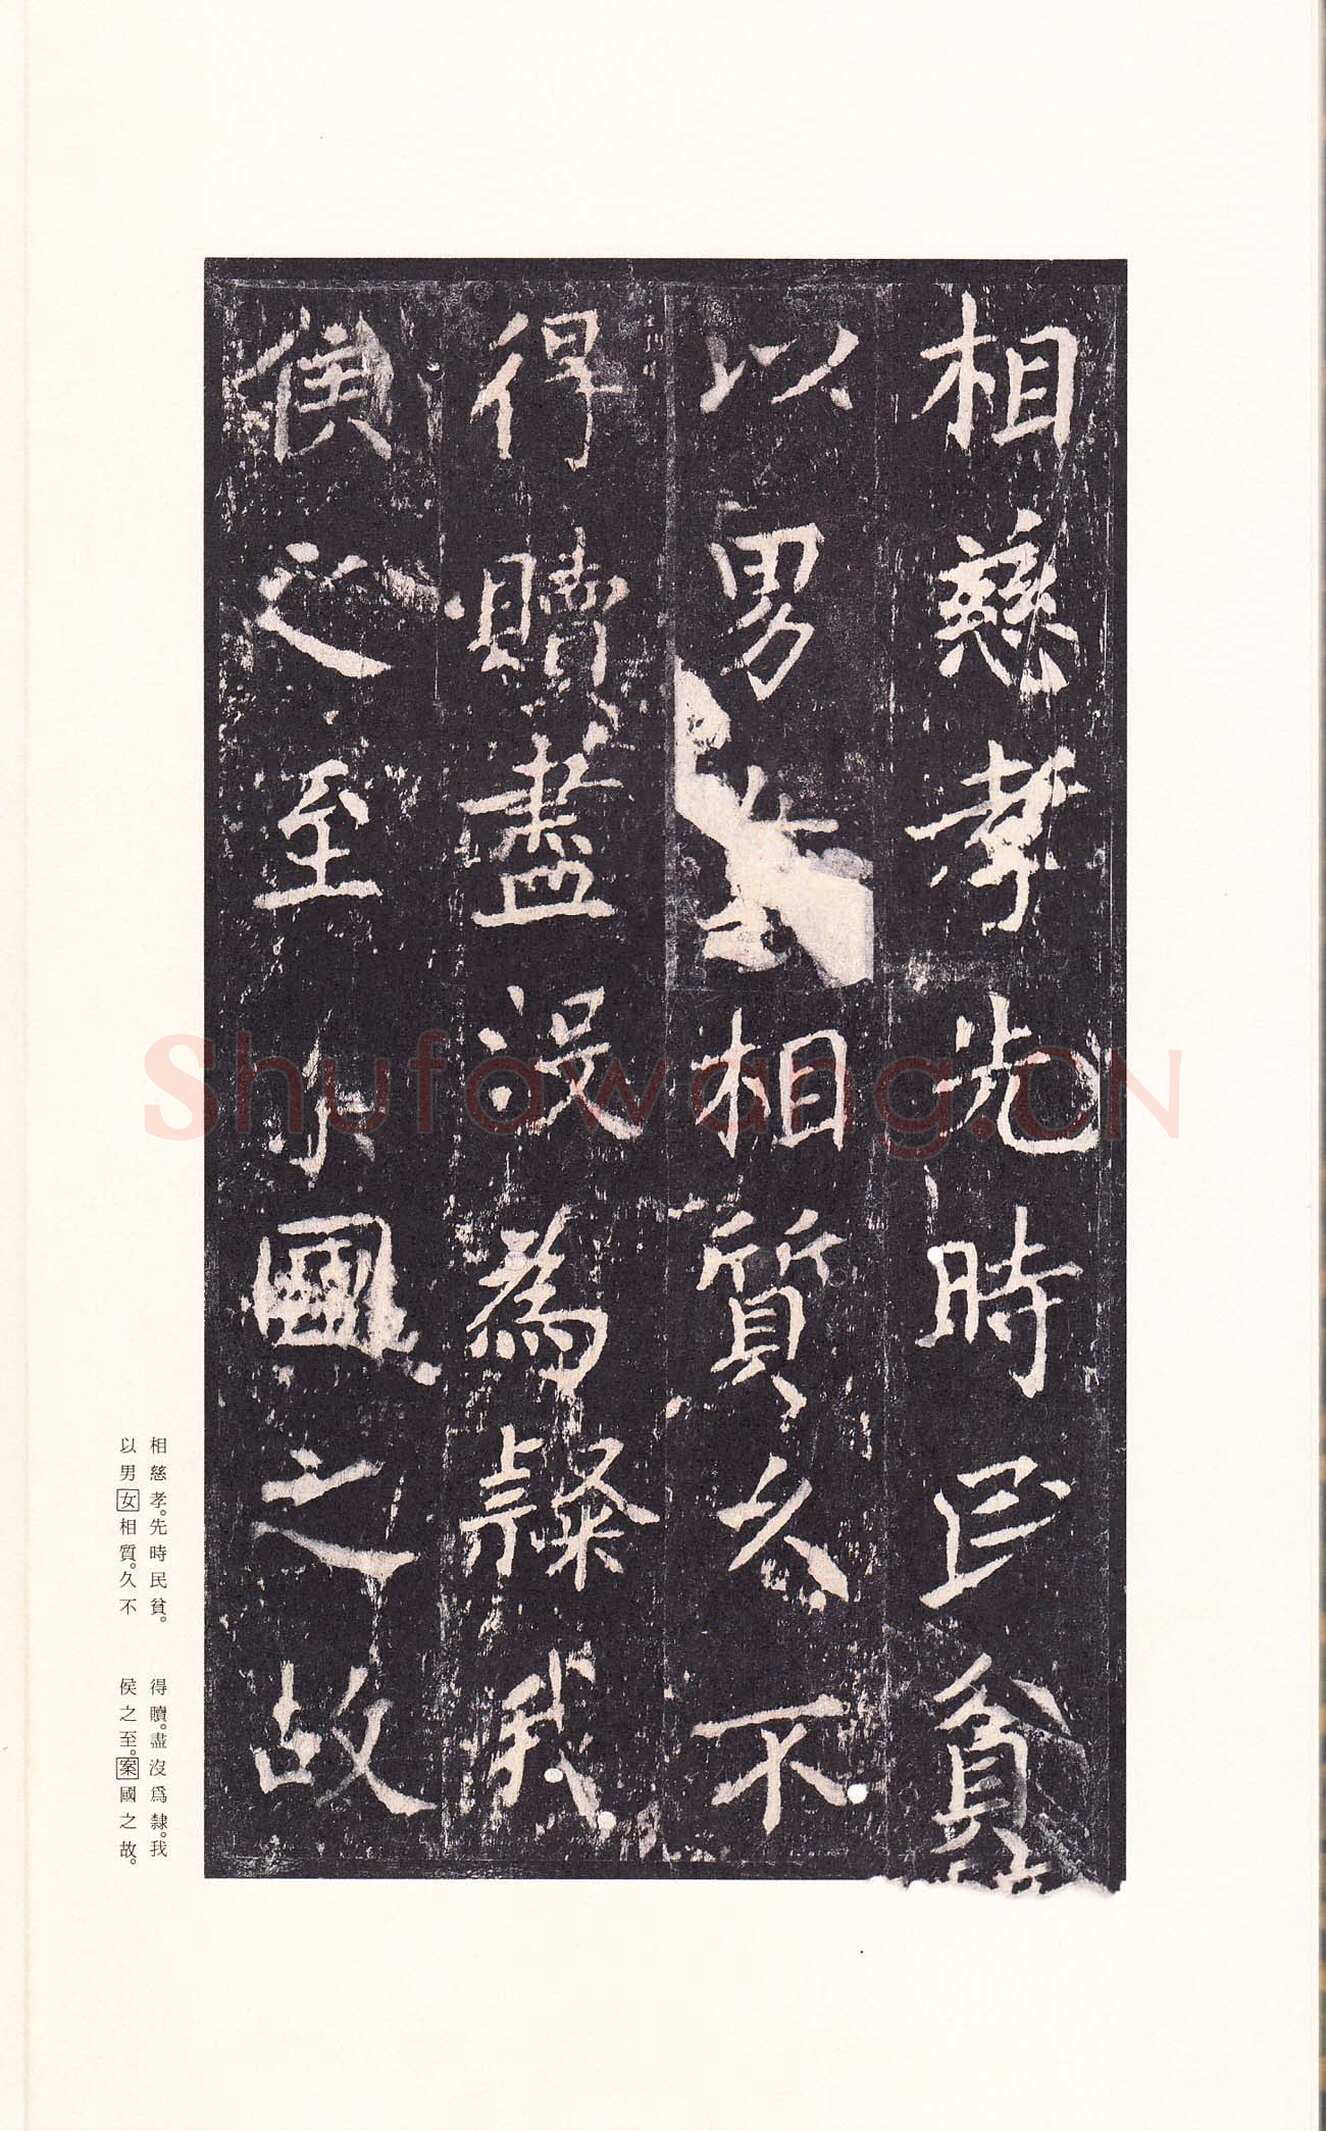 相慈孝先時民貧
以男女相質久不
得贖盡沒為隸我
侯之至案國之故
Shufawang.CN
相慈孝。先時民貧。
以男女相質。久不
得贖。盡沒爲隸。我
侯之至。案國之故。